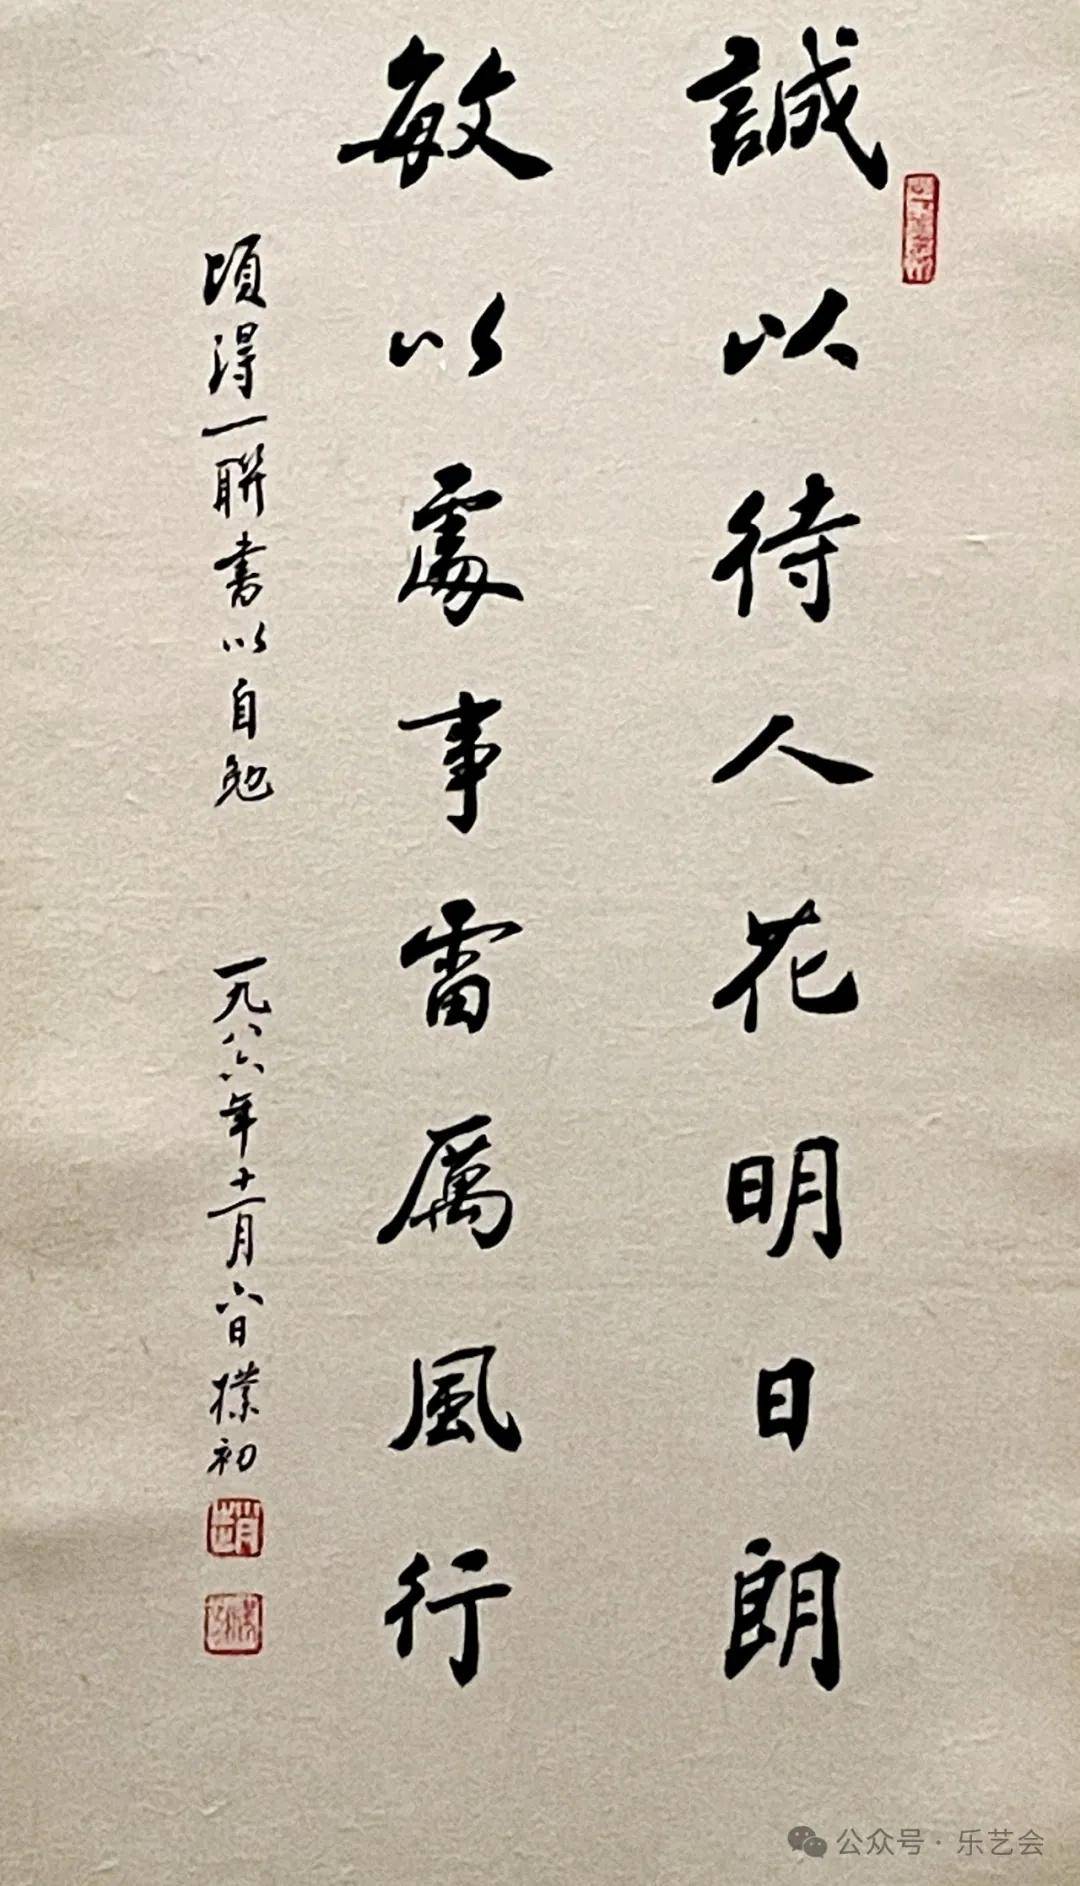 誠以待人花明日朗
敏以處事雷厲風行
頃得一聯書以自勉
一九八六年十二月六日樸初
趙
公众号·乐艺会